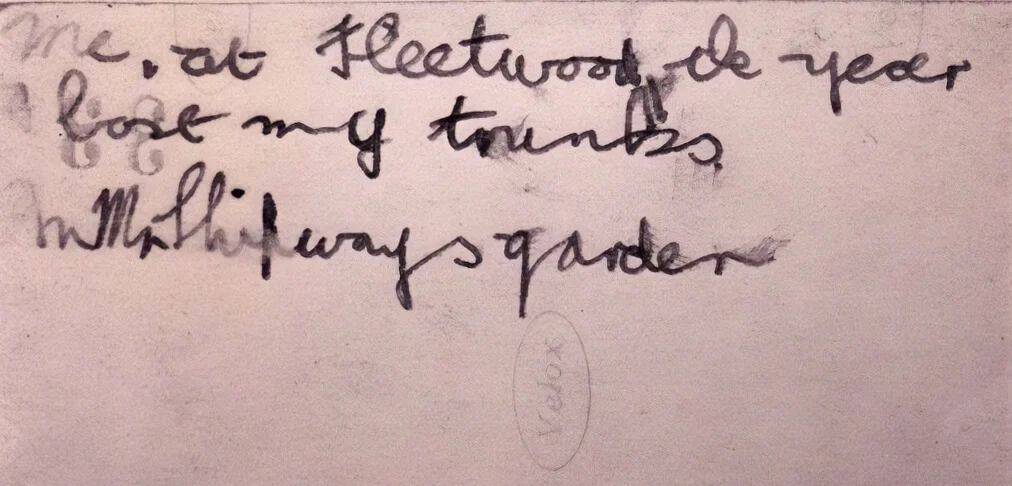 Me, at Fleetwood, the year
lost my trunks.
In Mr Shipways garden
Velox